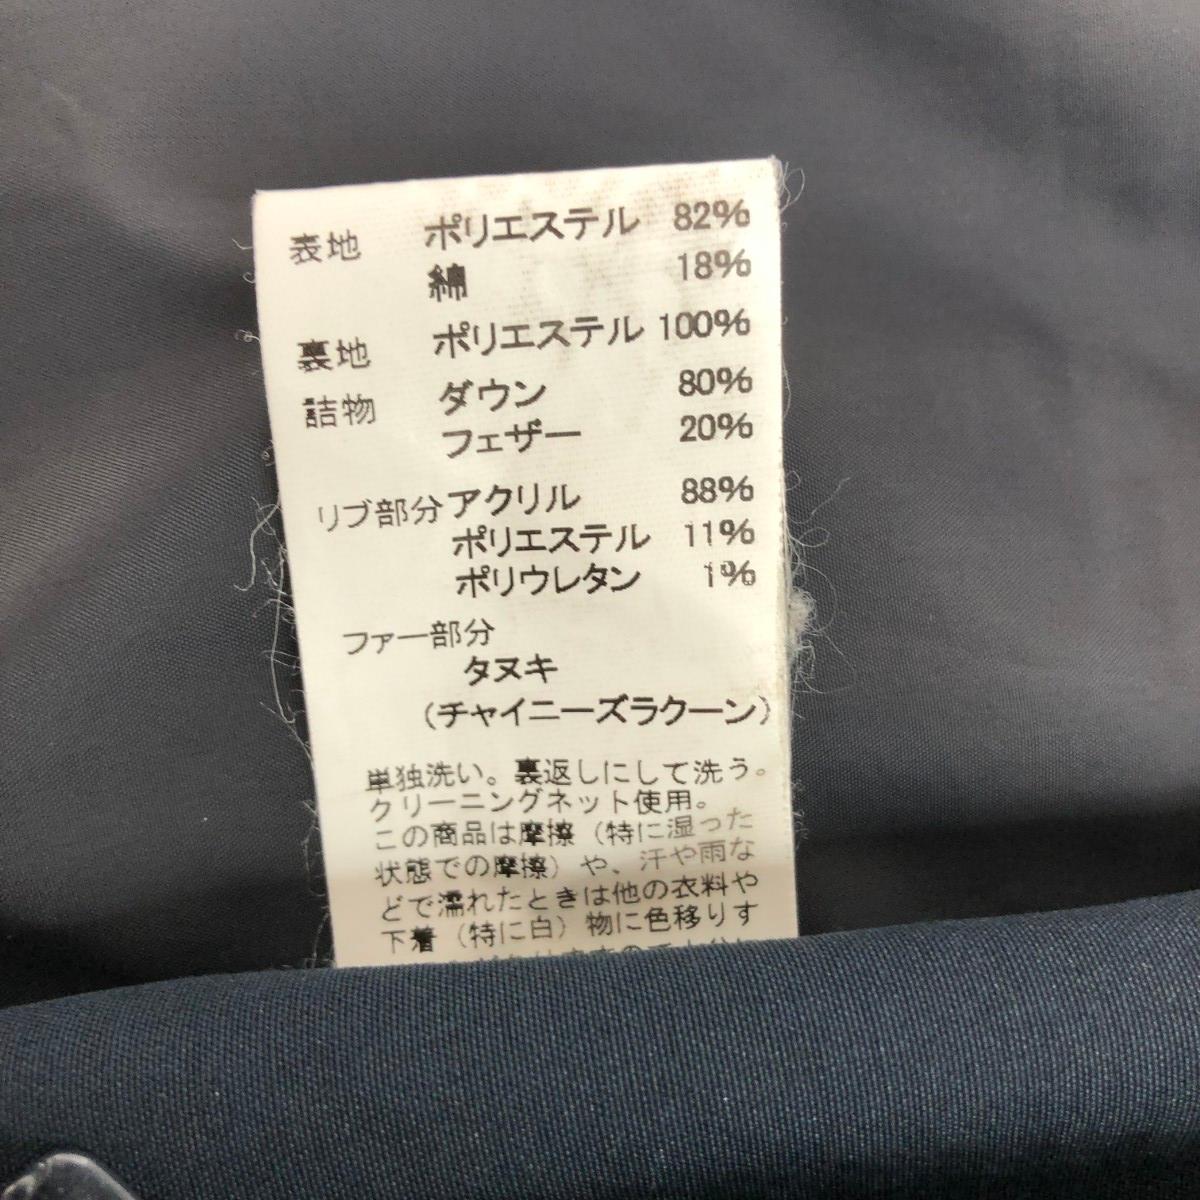 表地 ポリエステル 82%
綿 18%
裏地 ポリエステル 100%
詰物 ダウン 80%
フェザー 20%
リブ部分 アクリル 88%
ポリエステル 11%
ポリウレタン 1%
ファー部分
タヌキ
(チャイニーズラクーン)
単独洗い。裏返しにして洗う。
クリーニングネット使用。
この商品は摩擦(特に湿った
状態での摩擦)や、汗や雨な
どで濡れたときは他の衣料や
下着(特に白)物に色移りす